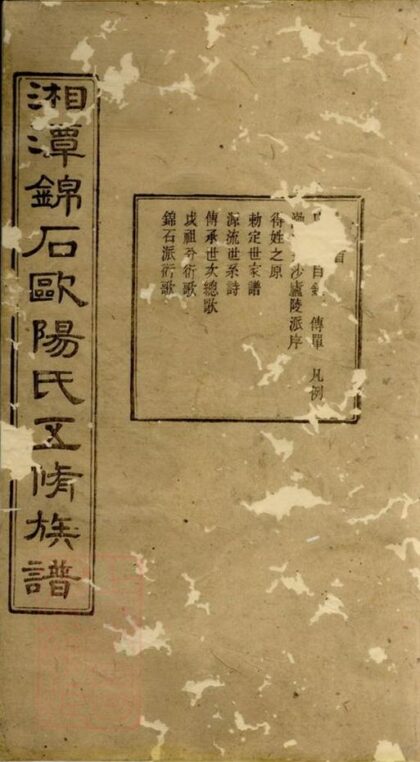 湘潭錦石歐陽氏五脩族譜
首
目錄 傳單 凡例
沙廬陵派序
得姓之原
勅定世家譜
源流世系詩
傳承世次總歌
戉祖分衍歌
錦石派衍歌